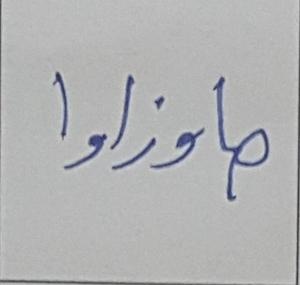 ماوزاوا